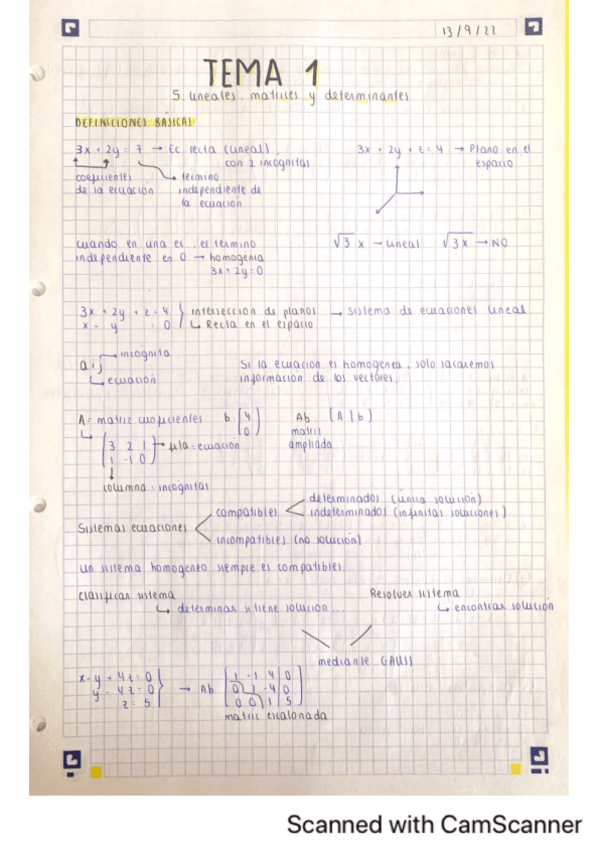 13/9/22
TEMA 1
S. lineales. matrices y determinantes
DEFINICIONES BÁSICAS
3x + 2y = 7 → Ec recta (lineal). con 2 incognitas
coeficientes de la ecuación
termino independiente de la ecuación
3x + 2y + z = 4 → Plano en el espacio
cuando en una ec. el termino
independiente es 0 → homogenia
3x + 2y = 0
√3 x → lineal √3x → NO
3x + 2y + z = 4 } intersección de planos → sistema de ecuaciones lineal
x - y = 0 } ↳ Recta en el espacio
aij
incógnita
ecuación
Si la ecuacion es homogenea, solo sacaremos
información de los vectores.
A = matriz coeficientes b [4 0] Ab [A | b]
matriz ampliada
[3 2 1
1 -1 0] → fila = ecuación
columna = incógnitas
Sistemas ecuaciones
compatibles
determinados (única solución)
indeterminados (infinitas soluciones)
incompatibles (no solución)
un sistema homogeneo siempre es compatibles
Clasificar sistema
↳ determinar si tiene solución...
Resolver sistema
↳ encontrar solución
mediante GAUSS
x - y + 4z = 0
y - 4z = 0
z = 5
→ Ab
[1 -1 4 | 0
0 1 -4 | 0
0 0 1 | 5]
matriz escalonada
Scanned with CamScanner